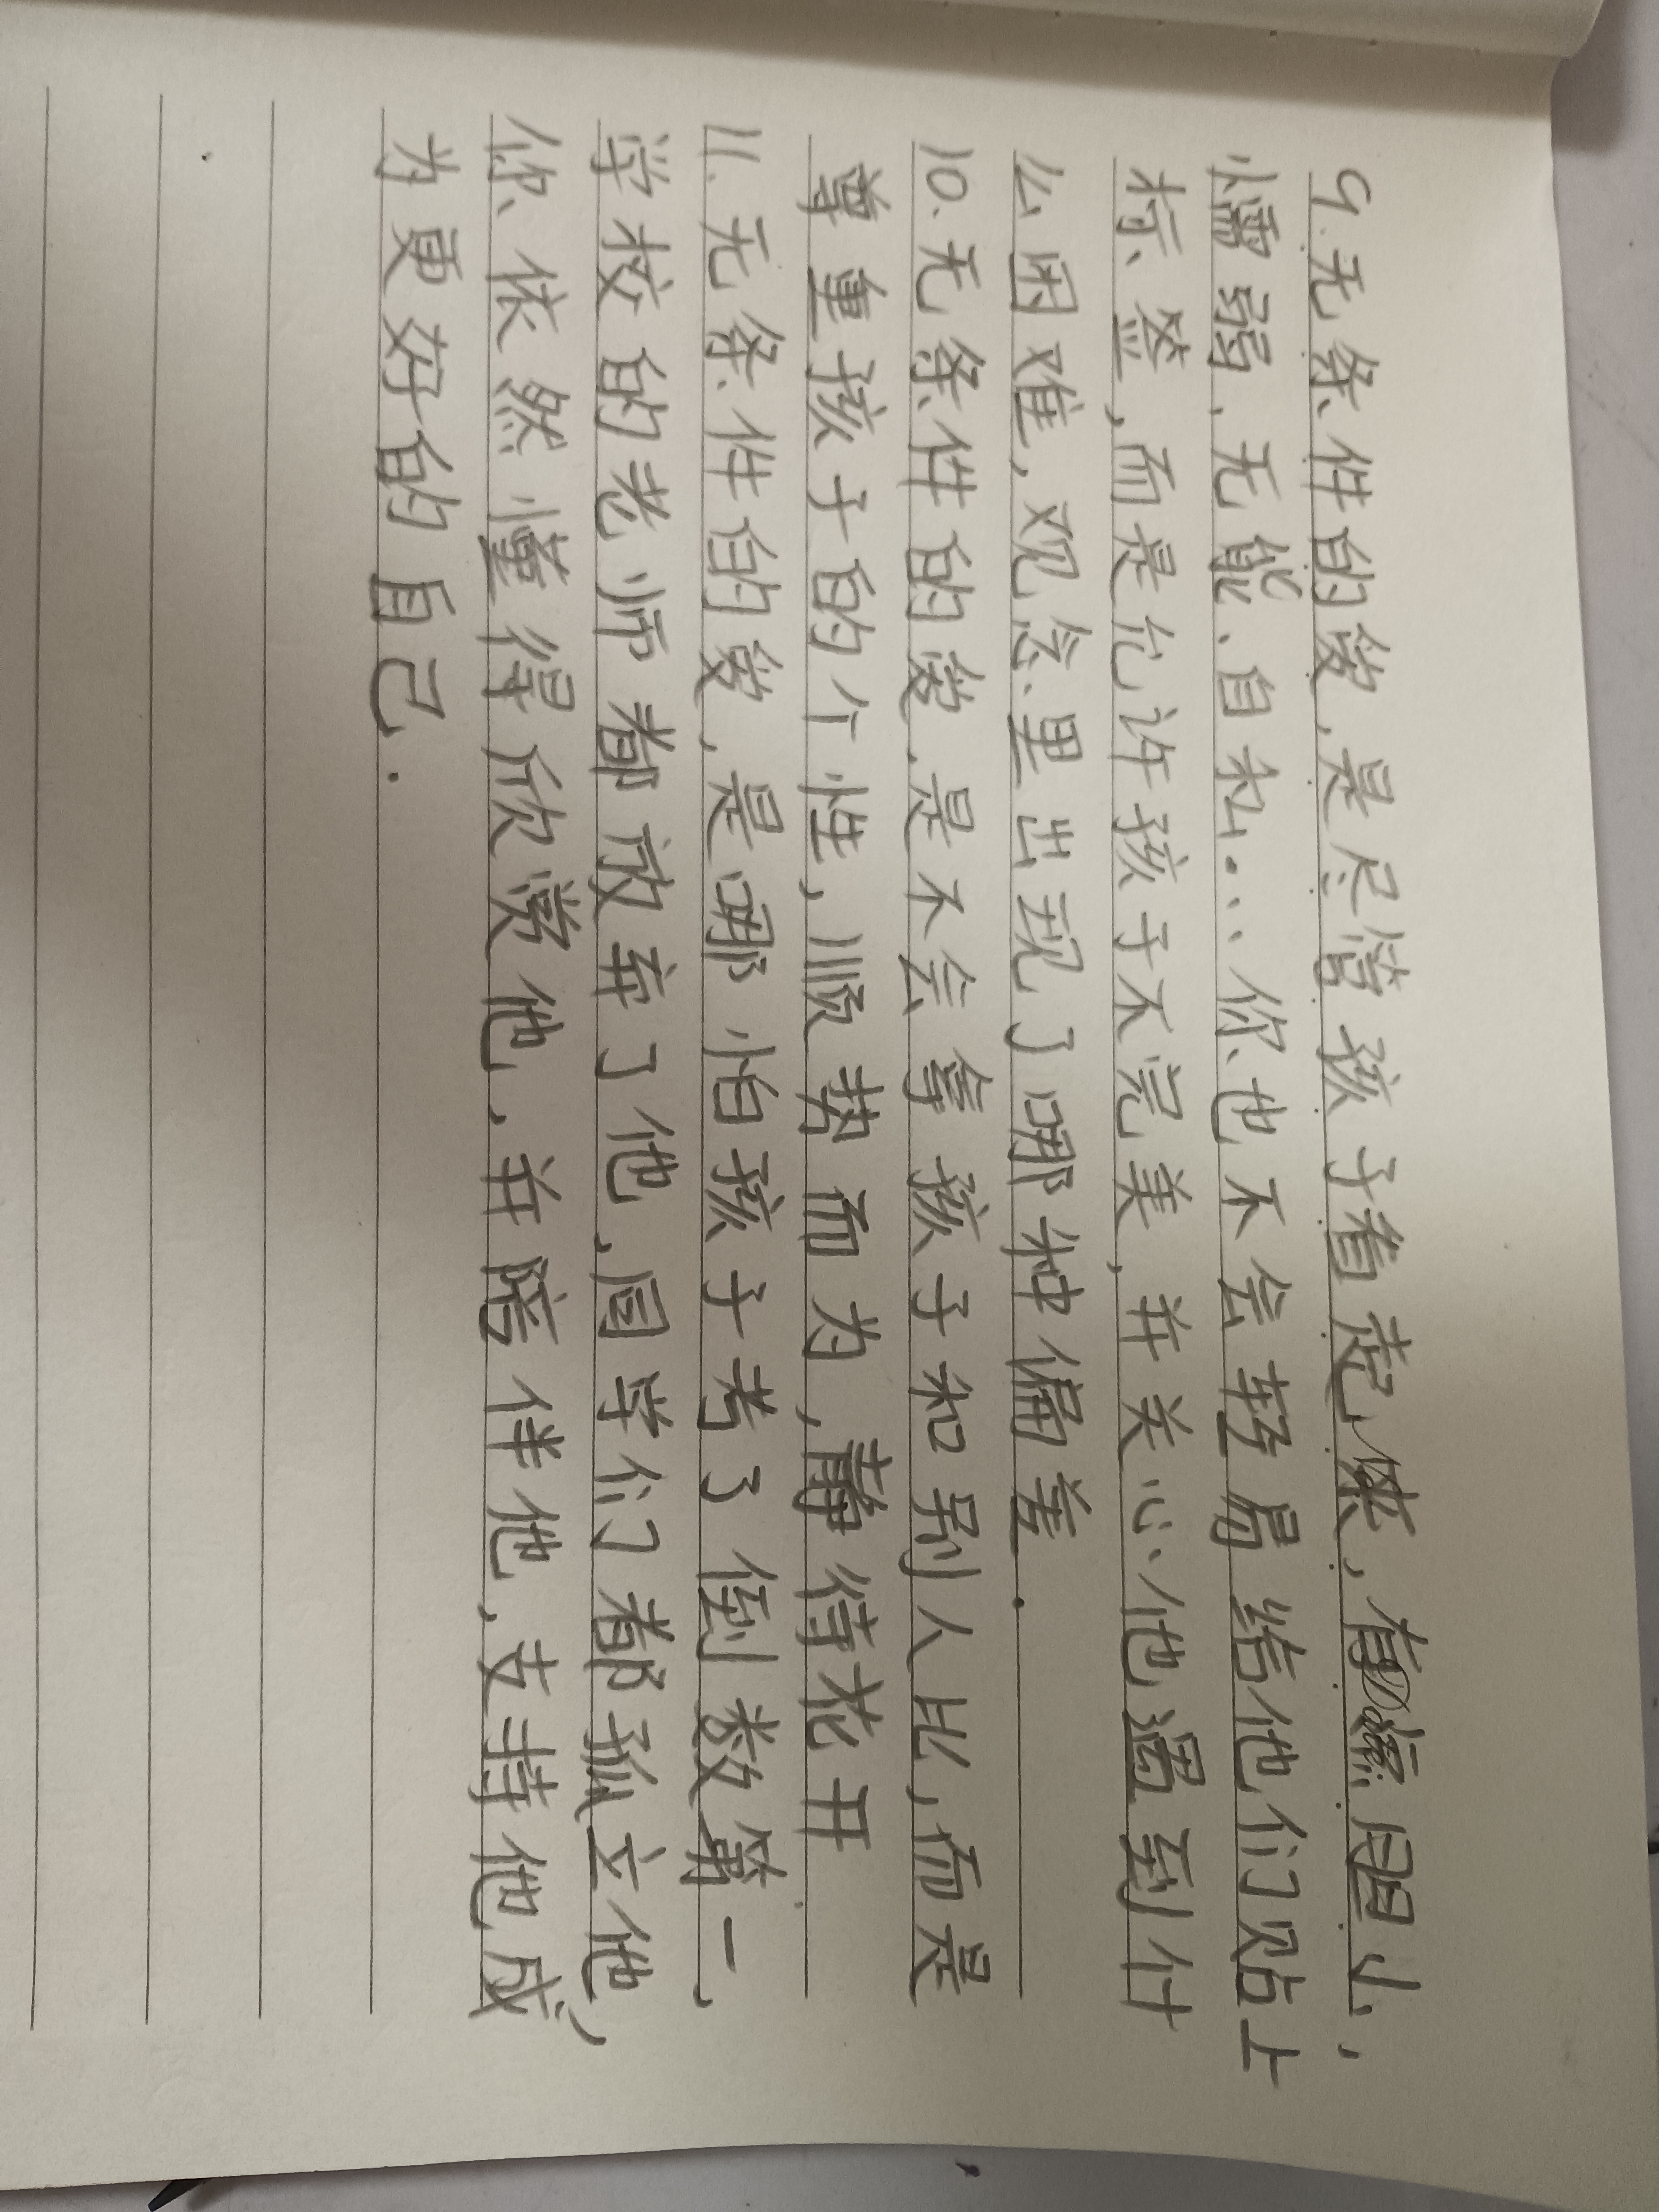 9.无条件的爱,是尽管孩子看起来,有点胆小,
懦弱、无能、自私...你也不会轻易给他们贴上
标签,而是允许孩子不完美,并关心他遇到什
么困难,观念里出现了哪种偏差.
10.无条件的爱,是不会拿孩子和别人比,而是
尊重孩子的个性,顺势而为,静待花开
11.无条件的爱,是哪怕孩子考了倒数第一,
学校的老师都放弃了他,同学们都孤立他,
你依然懂得欣赏他,并陪伴他,支持他成
为更好的自己.